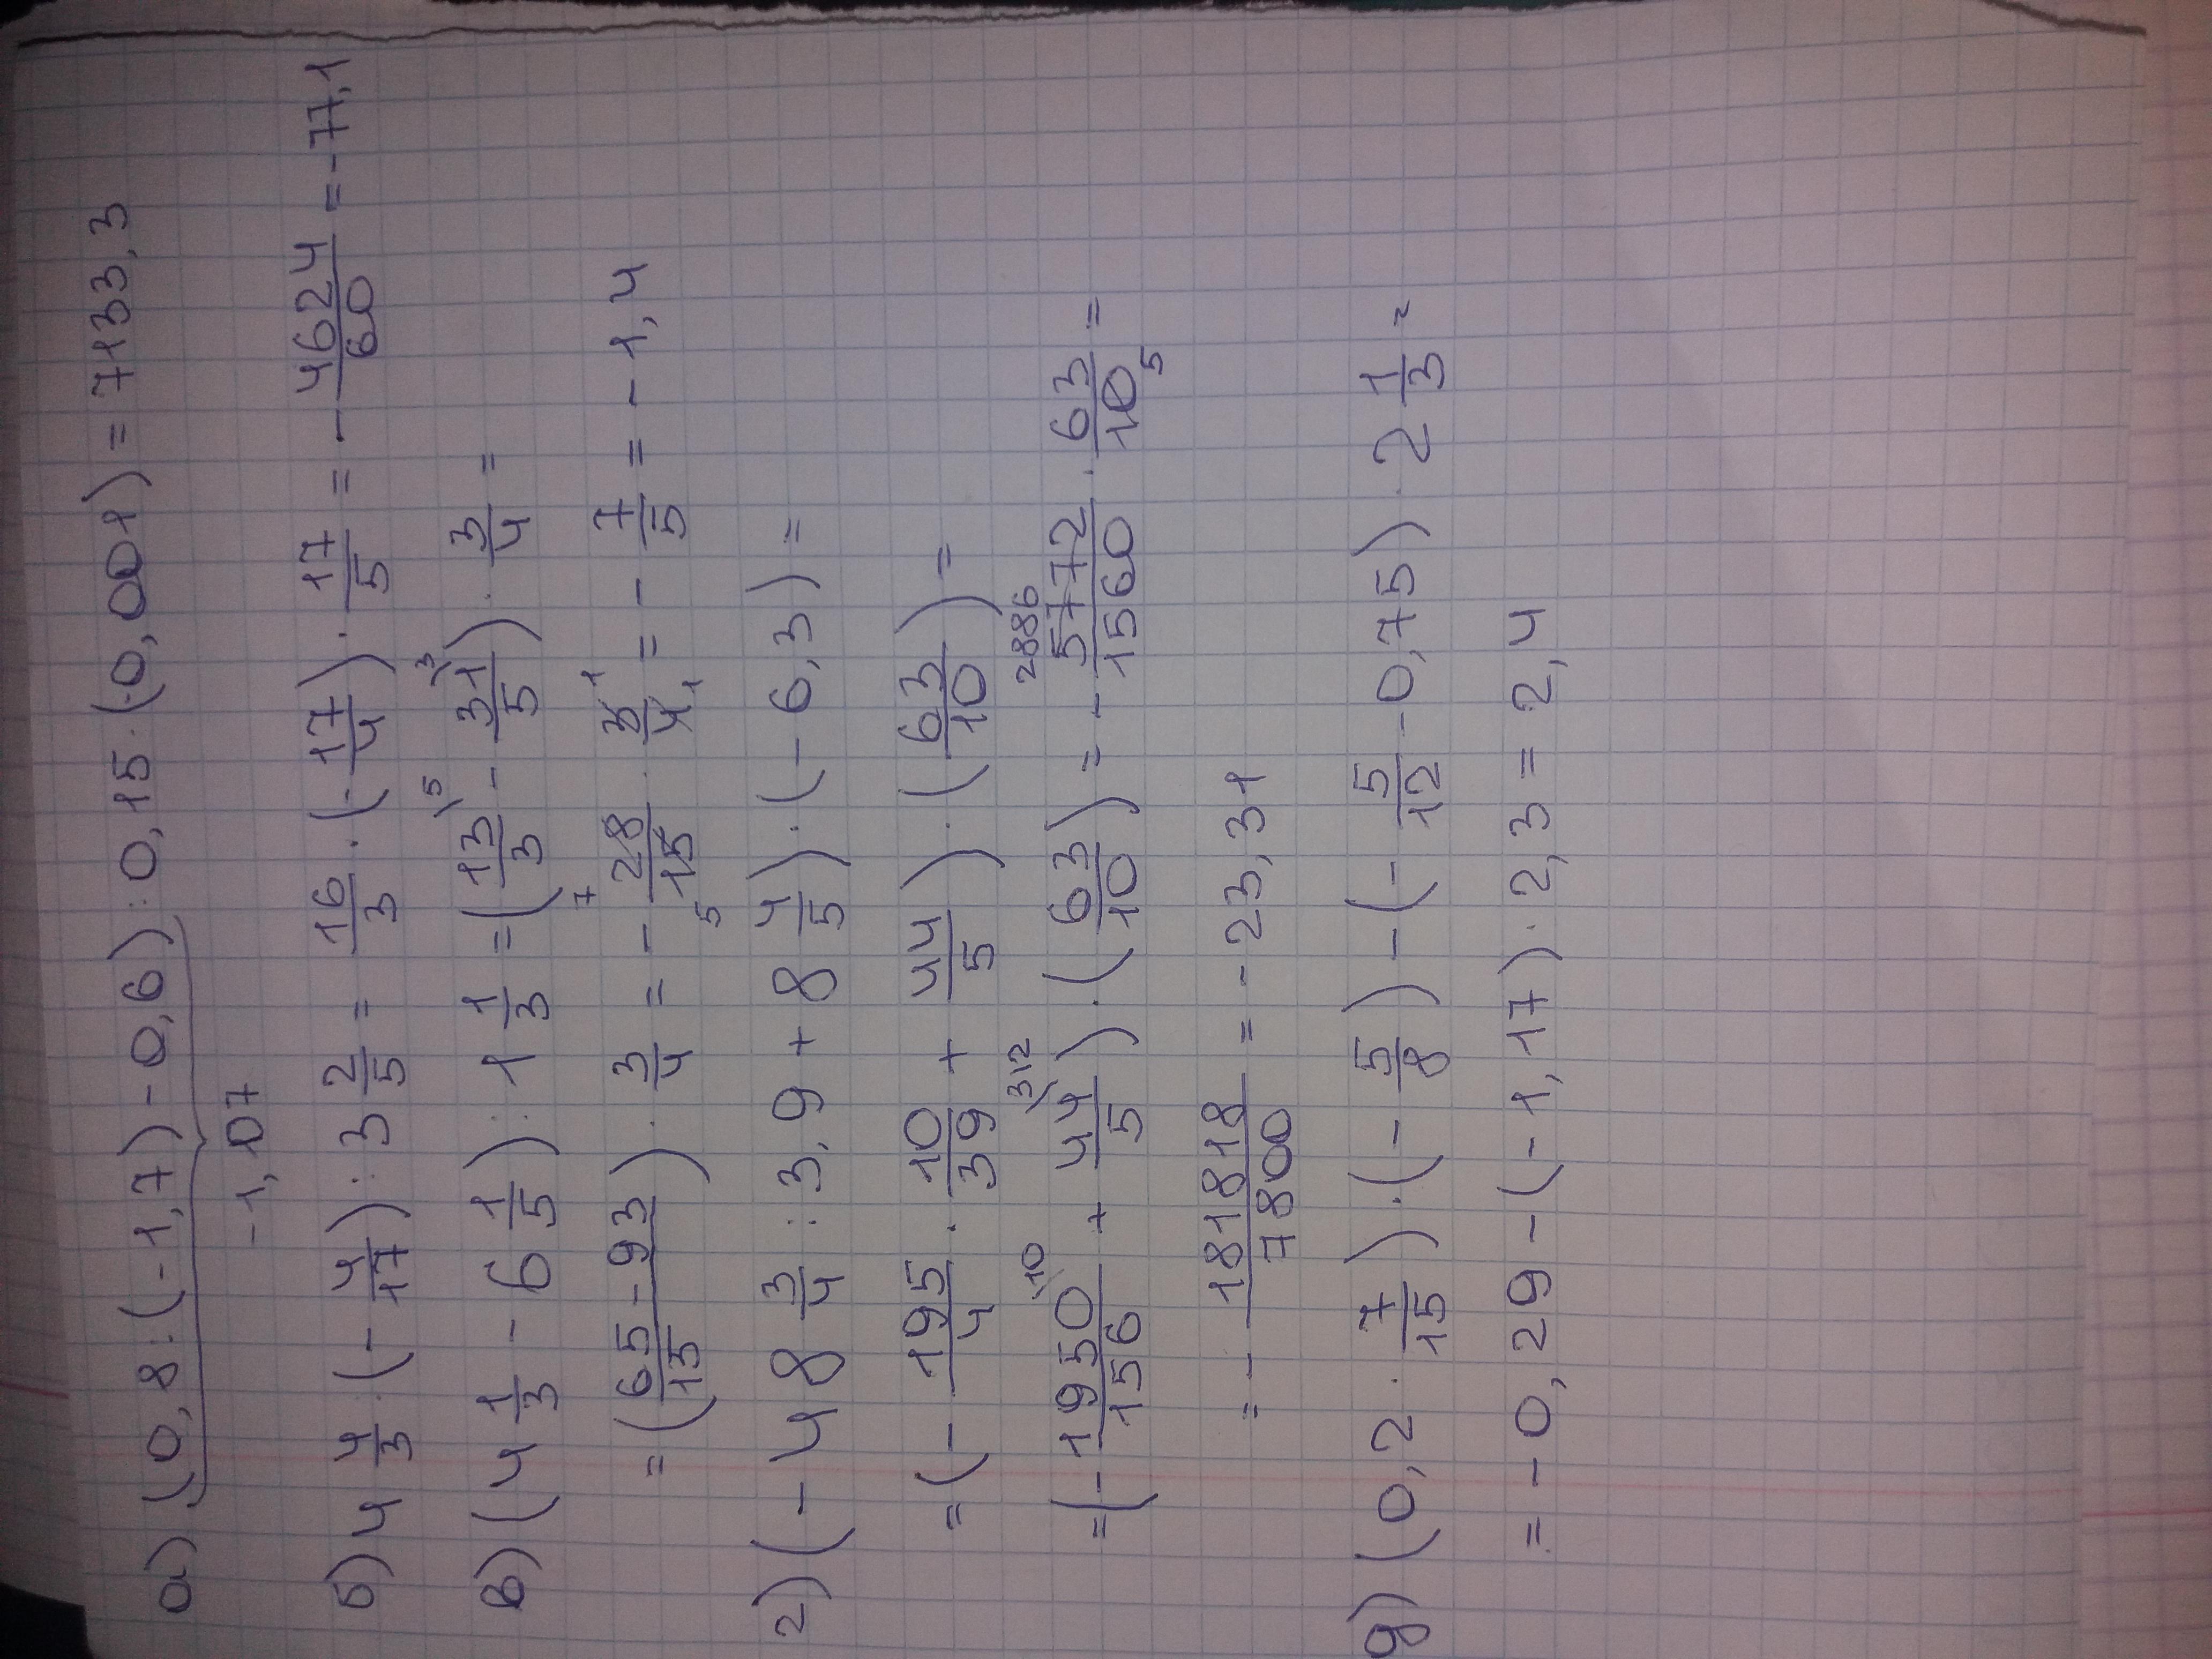 а) (0,8:(-1,7)-0,6):0,15·(-0,001)=7133,3
-1,07
б) 4 4/3·(-4/17):3 2/5 = 16/3·(-17/4)·17/5 = -4624/60 = -77,1
в) (4 1/3 - 6 1/5):1 1/3 = (13/3 \5 - 31/5 \3)·3/4 =
= (65-93/15)·3/4 = - 7 28/15 5 · 3 1/4 1 = - 7/5 = -1,4
г) (-48 3/4 : 3,9 + 8 4/5)·(-6,3) =
= (- 195/4 · 10/39 + 44/5)·(63/10) =
= (- 1950/156 \10 + 44/5 \312)·(63/10) = - 2886 5772/1560 · 63/10 5 =
= - 181818/7800 = -23,31
д) (0,2 · 7/15)·(- 5/8) - (- 5/12 - 0,75)·2 1/3 =
= -0,29 - (-1,17)·2,3 = 2,4